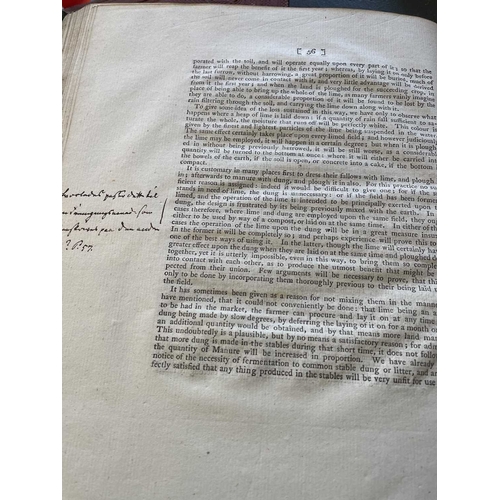 [ 56 ]
porated with the soil, and will operate equally upon every part of it; so that the
farmer will reap the benefit of it the first year; whereas, by laying it on only before
the last furrow, without harrowing, a great proportion of it will be buried, much of
the soil will never come in contact with it, and very little advantage will be derived
from it the first year; and when the land is ploughed for the succeeding crop, in
place of being able to bring up the whole of the lime, as many farmers vainly imagine
they are able to do, a considerable proportion of it will be found to be lost by the
rain filtering through the soil, and carrying the lime down along with it.
To give some idea of the loss sustained in this way, we have only to observe what
happens where a heap of lime is laid down: if a quantity of rain fall sufficient to sa-
turate the whole, the moisture that runs off will be perfectly white. This colour is
given by the finest and lightest particles of the lime being suspended in the water.
The same effect certainly takes place upon every limed field; and however judiciously
the lime may be employed, it will happen in a certain degree; but when it is plough-
ed in without being previously harrowed, it will be still worse, as a considerable
quantity will be turned to the bottom at once; where it will either be carried into
the bowels of the earth, if the soil is open, or concrete into a cake, if the bottom
compact.
It is customary in many places first to dress their fallows with lime, and plough
in; afterwards to manure with dung, and plough it in also. For this practice no su
ficient reason is assigned: indeed it would be difficult to give one; for if the s
stands in need of lime, the dung is unnecessary: or if the field has been former
limed, and the operation of the lime is intended to be principally exerted upon t
dung, the design is frustrated by its being previously mixed with the earth. In
cases therefore, where lime and dung are employed upon the same field, they ou
either to be used by way of a compost, or laid on at the same time. In either of th
cases the operation of the lime upon the dung will be in a great measure insu
In the former it will be completely so; and perhaps experience will prove this to
one of the best ways of using it. In the latter, though the lime will certainly ha
greater effect upon the dung when they are laid on at the same time and ploughed d
together, yet it is utterly impossible, even in this way, to bring them so comple
into contact with each other, as to produce the utmost benefit that might be
pected from their union. Few arguments will be necessary to prove, that thi
only to be done by incorporating them thoroughly previous to their being laid
the field.
It has sometimes been given as a reason for not mixing them in the mann
have mentioned, that it could not conveniently be done; that lime being an a
to be had in the market, the farmer can procure and lay it on at any time,
dung being made by slow degrees, by deferring the laying of it on for a month o
an additional quantity would be obtained, and by that means more land ma
This undoubtedly is a plausible, but by no means a satisfactory reason; for adm
that more dung is made in the stables during that short time, it does not follow
the quantity of Manure will be increased in proportion. We have already
notice of the necessity of fermentation to common stable dung or litter, and ar
fectly satisfied that any thing produced in the stables will be very unfit for use